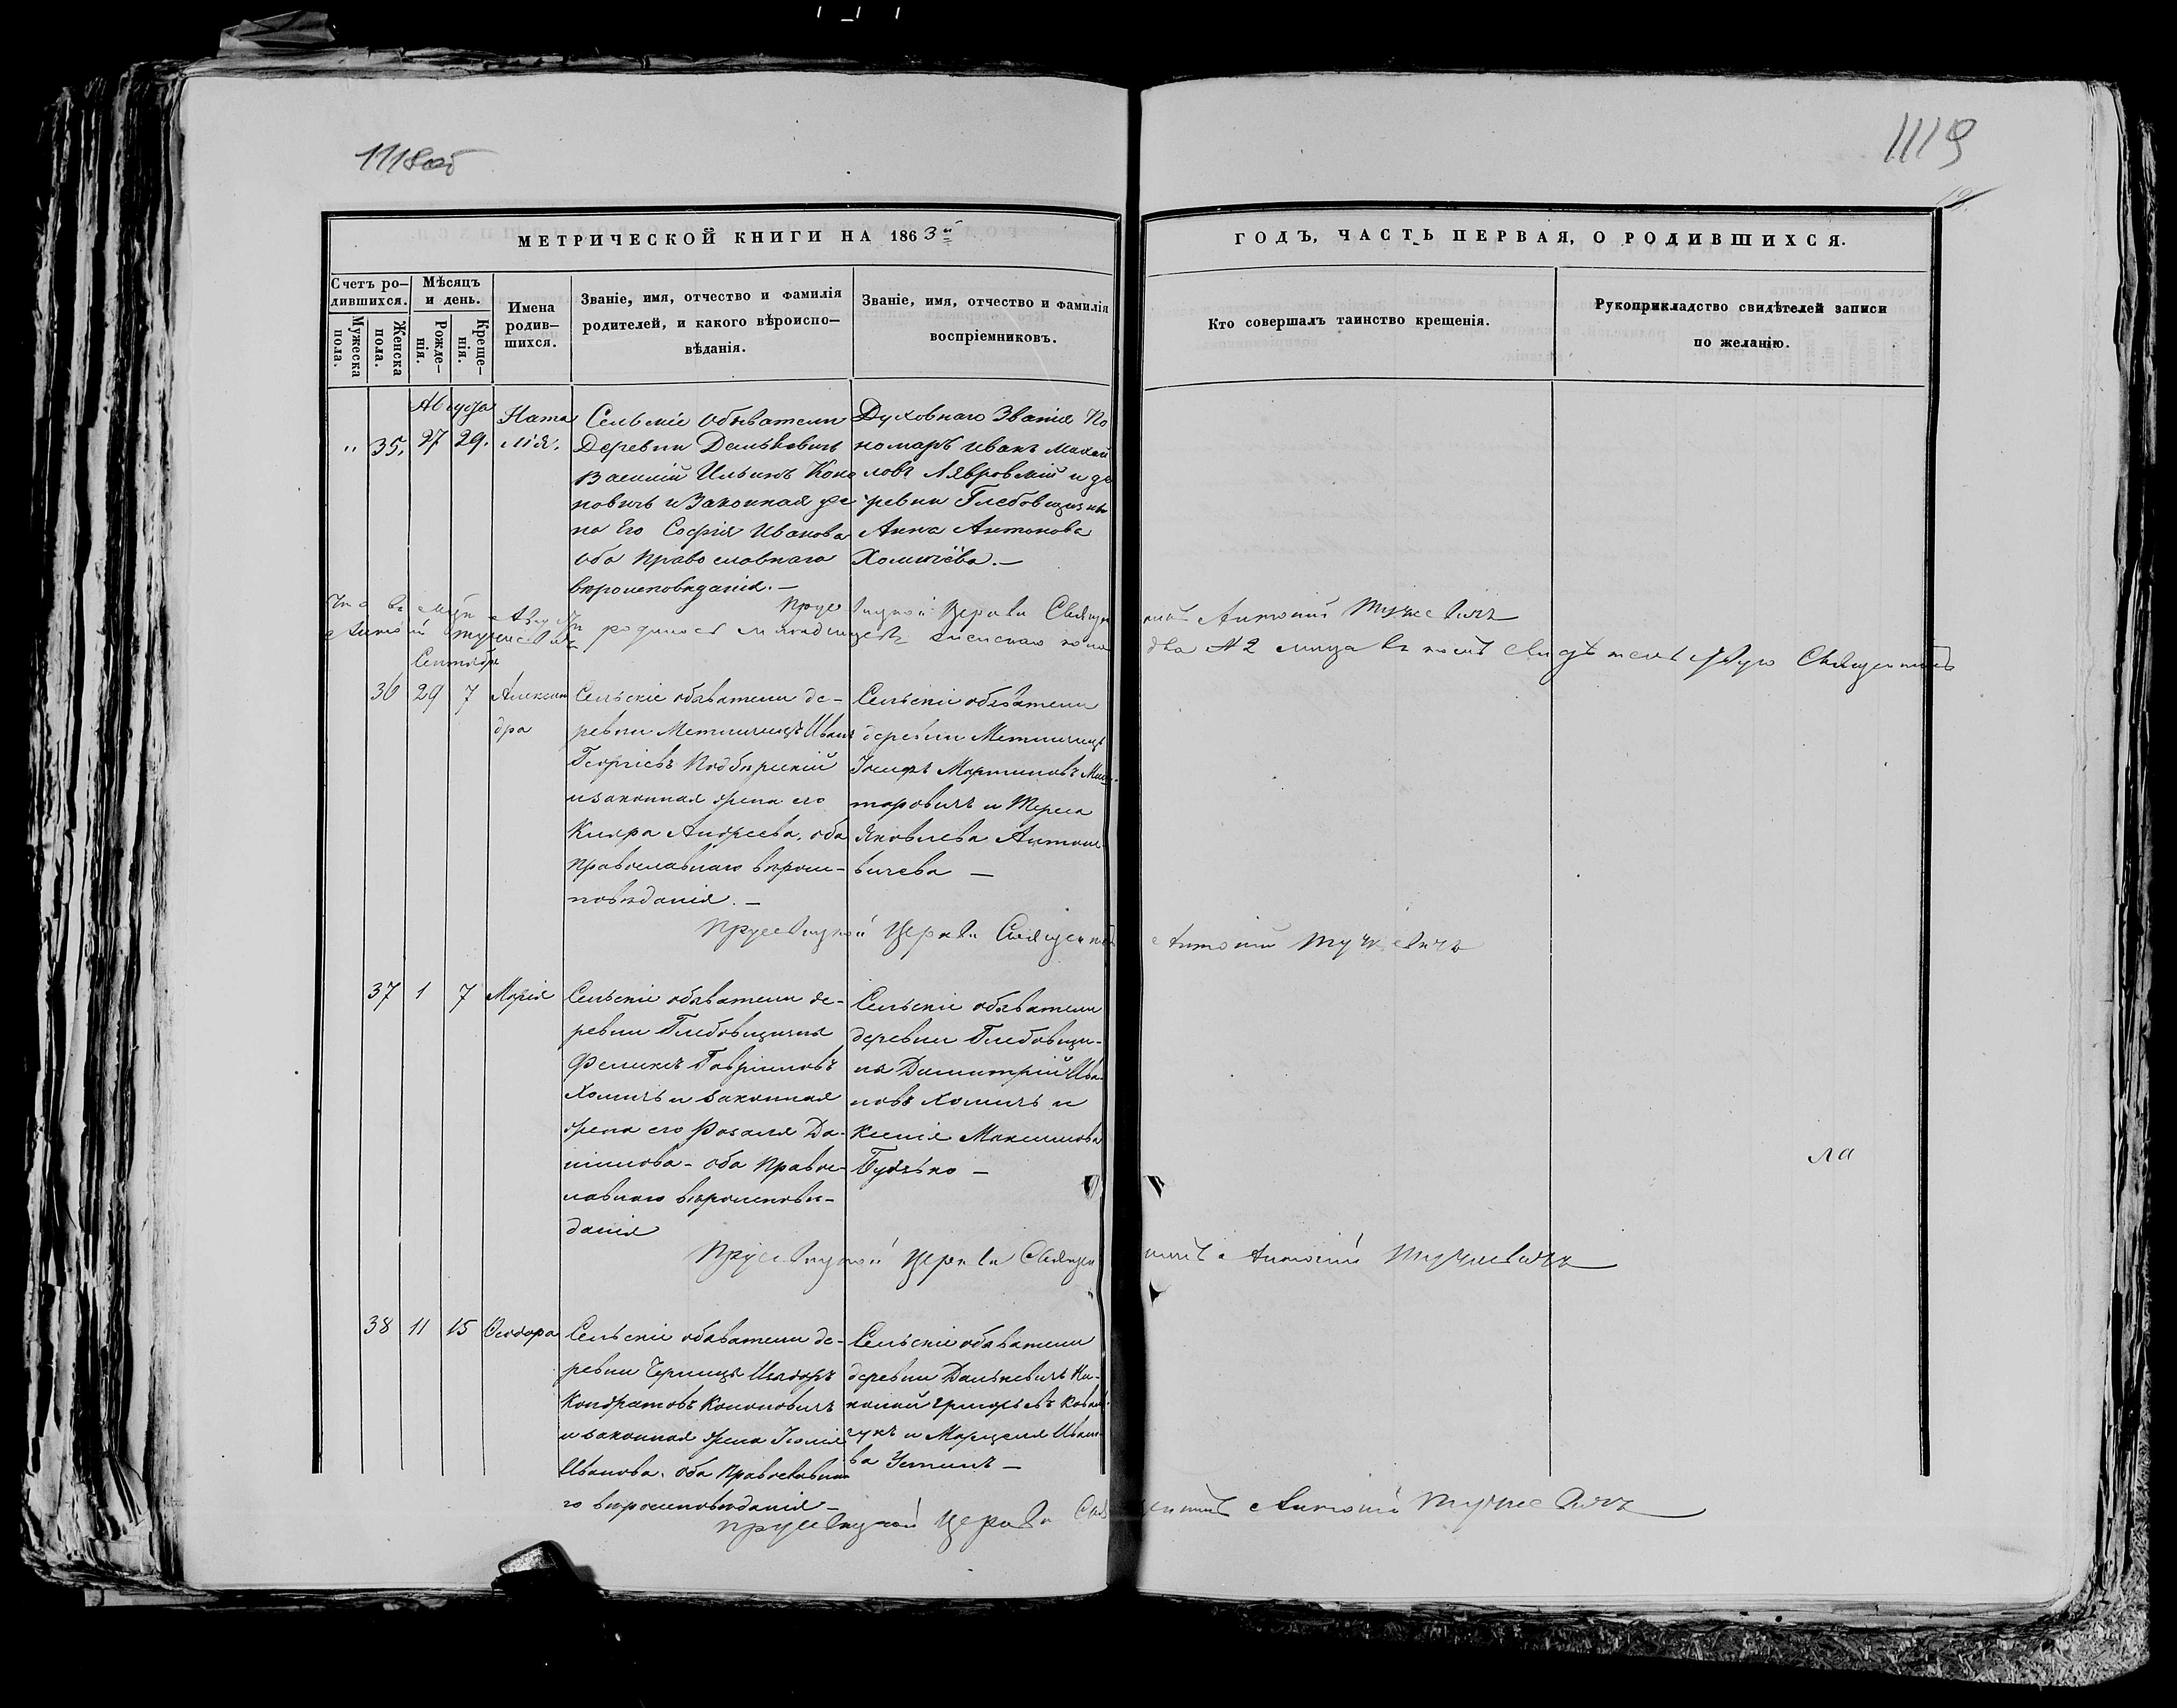 1118об
1119
МЕТРИЧЕСКОЙ КНИГИ НА 1863й
ГОДЪ, ЧАСТЬ ПЕРВАЯ, О РОДИВШИХСЯ.
Счетъ ро-
дившихся.
Мужеска
пола.
Женска
пола.
Мѣсяцъ
и день.
Рожде-
нія.
Креще-
нія.
Имена
родив-
шихся.
Званіе, имя, отчество и фамилія
родителей, и какого вѣроиспо-
вѣданія.
Званіе, имя, отчество и фамилія
воспріемниковъ.
Кто совершалъ таинство крещенія.
Рукоприкладство свидѣтелей записи
по желанію.
Августа
" 35. 27 29.
Ната
лія.
Сельскіе Обыватели
Деревни Даньковичъ
Василій Ильинъ Коно
новичъ и Законная же
на Его Софія Иванова
оба Православнаго
вѣроисповѣданія.—
Духовнаго Званія По
номаръ Иванъ Михай
ловъ Лявровскій и де
ревни Глебовщизны
Анна Антонова
Хомичёва.—
Прусевицкой Церкви Священникъ Антоній Тучкевичъ
Августѣ родилось младенцевъ женскаго пола
два № 2 лица въ томъ свидѣтельствую Священникъ
Антоній Тучкевичъ
Сентября
36 29 7
Алексан
дра
Сельскіе обыватели де-
ревни Метличицъ Иванъ
Георгіевъ Подберискій
и законная жена его
Кляра Андреева, оба
Православнаго вѣроис-
повѣданія.—
Сельскіе обыватели
деревни Метличицъ
Іосифъ Мартиновъ
торовичъ и Тереса
Яковлева Антоне
вичева —
Прусевицкой Церкви Священникъ Антоній Тучкевичъ
37 1 7
Марія
Сельскіе обыватели де-
ревни Глебовщизны
Феликсъ Гавріиловъ
Хомичъ и законная
жена его Розалія Да-
ниилова - оба Правос-
лавнаго вѣроисповѣ-
данія
Сельскіе обыватели
деревни Глебовщиз-
ны Димитрій Ива-
новъ Хомичъ и
Ксенія Максимова
Будзько —
ла
Прусевицкой Церкви Священникъ Антоній Тучкевичъ
38 11 15
Ѳеодора
Сельскіе обыватели де-
ревни Черницъ Исидоръ
Кондратовъ Кононовичъ
и законная жена Юлія
Иванова, оба Православна
го вѣроисповѣданія—
Сельскіе обыватели
деревни Даньковичъ Ни-
колай Григорьевъ Коваль
чукъ и Марцеля Ивано-
ва —
Прусевицкой Церкви Священникъ Антоній Тучкевичъ